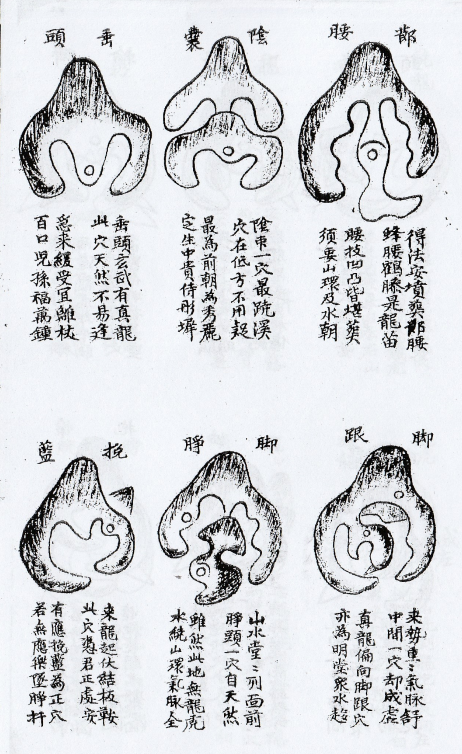 腰
得法安墳葬腰
蜂腰鶴膝是龍苗
腰技凹凸皆堪葬
須要山環及水朝
陰囊
陰一穴最溪
穴在低方不用
最為前朝為秀麗
定生中貴侍彤墀
垂頭
垂頭玄武有真龍
此穴天然不易逢
急來緩受宜離杖
百口兒孫福萬鐘
脚跟
來勢重ミ氣脉舒
中間一穴却成處
真龍偏向脚跟穴
亦為明堂衆水趋
脚脝
山水堂ミ列面前
脝頭一穴自天然
雖然此地無龍虎
水繞山環氣脉全
挽藍
來龍起伏結板鞍
此穴憑君正處安
有應挽藍為正穴
若無應樂墜脝杆